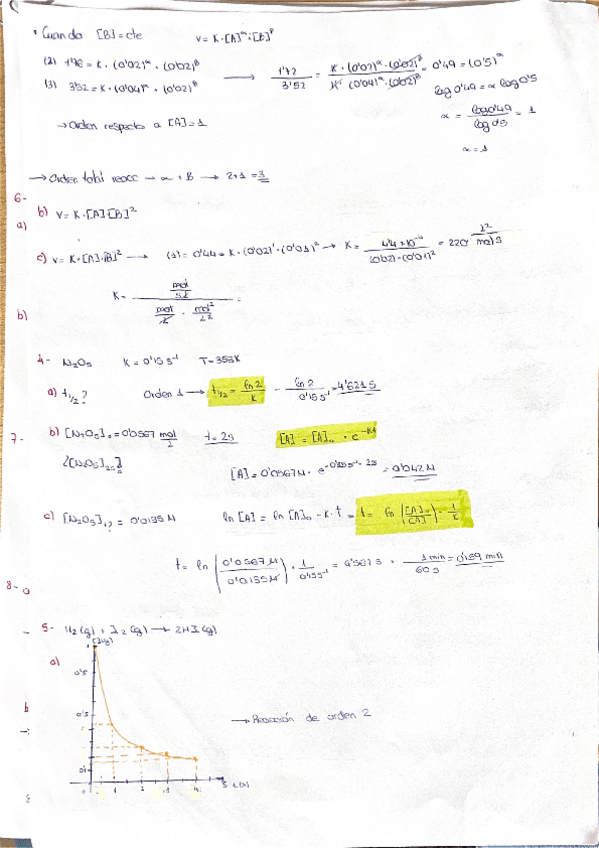 • Cuando [B]=cte   v = K·[A]^α·[B]^β
(2) 1'76 = K·(0'02)^α·(0'02)^β
(3) 3'52 = K·(0'04)^α·(0'02)^β
→ 1'72/3'52 = K·(0'02)^α·(0'02)^β / K·(0'04)^α·(0'02)^β = 0'49 = (0'5)^α
log 0'49 = α log 0'5
α = log 0'49 / log 0'5 = 1
α = 1
→ Orden respecto a [A] = 1
→ Orden total reacc → α + β → 2+1 = 3
6-
b) v = K·[A]·[B]²
a)
c) v = K·[A]·[B]² → (1) = 0'44 = K·(0'02)¹·(0'01)² → K = 4'4×10⁻⁴ / (0'02)·(0'01)² = 220 L²/mol²s
K = mol/s·L / mol/L · mol²/L² =
b)
4- N₂O₅   K = 0'15 s⁻¹   T = 353K
a) t₁/₂?   Orden 1 → t₁/₂ = ln 2/K = ln 2/0'15 s⁻¹ = 4'621 s
7-
b) [N₂O₅]₀ = 0'0567 mol/L   t = 2s   [A] = [A]₀ · e^-K·t
¿[N₂O₅]₂ₛ?
[A] = 0'0567M · e^-0'15 s⁻¹ · 2s = 0'042M
c) [N₂O₅]t? = 0'0135 M   ln [A] = ln [A]₀ - K·t = t = ln ([A]₀/[A]) · 1/K
t = ln (0'0567M / 0'0135M) · 1/0'15 s⁻¹ = 9'567 s · 1 min/60 s = 0'159 min
8- a
5- H₂(g) + I₂(g) → 2HI(g)
a)
0'5
b
→ Reacción de orden 2
0
1
8